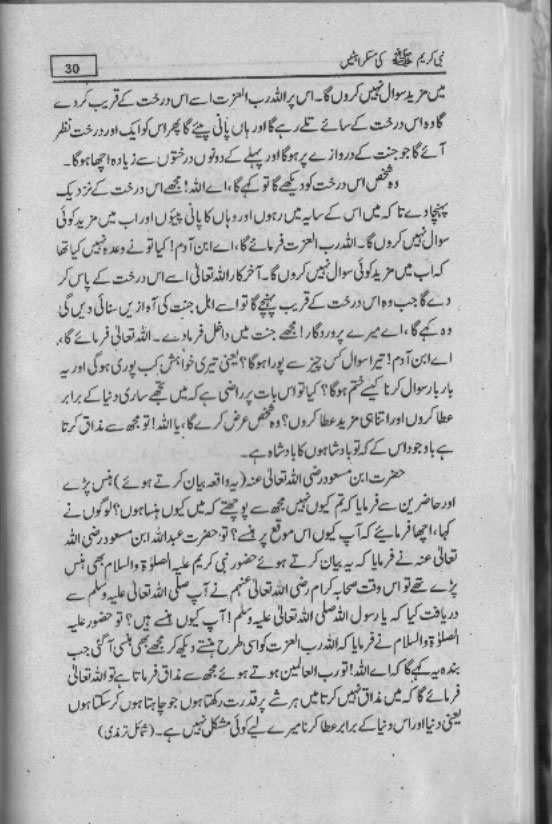 نبی کریم ﷺ کی مسکراہٹیں
30
میں مزید سوال نہیں کروں گا۔ اس پر اللہ رب العزت اسے اس درخت کے قریب کر دے
گا وہ اس درخت کے سائے تلے رہے گا اور ہاں پانی پیئے گا پھر اس کو ایک اور درخت نظر
آئے گا جو جنت کے دروازے پر ہوگا اور پہلے کے دونوں درختوں سے زیادہ اچھا ہوگا۔
وہ شخص اس درخت کو دیکھے گا تو کہے گا، اے اللہ! مجھے اس درخت کے نزدیک
پہنچا دے تاکہ میں اس کے سایہ میں رہوں اور وہاں کا پانی پیوں اور اب میں مزید کوئی
سوال نہیں کروں گا۔ اللہ رب العزت فرمائے گا، اے ابن آدم! کیا تو نے وعدہ نہیں کیا تھا
کہ اب میں مزید کوئی سوال نہیں کروں گا۔ آخر کار اللہ تعالیٰ اسے اس درخت کے پاس کر
دے گا جب وہ اس درخت کے قریب پہنچے گا تو اسے اہل جنت کی آوازیں سنائی دیں گی
وہ کہے گا، اے میرے پروردگار! مجھے جنت میں داخل فرما دے۔ اللہ تعالیٰ فرمائے گا،
اے ابن آدم! تیرا سوال کس چیز سے پورا ہوگا؟ یعنی تیری خواہش کب پوری ہوگی اور یہ
بار بار سوال کرنا کیسے ختم ہوگا؟ کیا تو اس بات پر راضی ہے کہ میں تجھے ساری دنیا کے برابر
عطا کروں اور اتنا ہی مزید عطا کروں؟ وہ شخص عرض کرے گا، یا اللہ! تو مجھ سے مذاق کرتا
ہے باوجود اس کے کہ تو بادشاہوں کا بادشاہ ہے۔
حضرت ابن مسعود رضی اللہ تعالیٰ عنہ (یہ واقعہ بیان کرتے ہوئے) ہنس پڑے
اور حاضرین سے فرمایا کہ تم کیوں نہیں مجھ سے پوچھتے کہ میں کیوں ہنسا ہوں؟ لوگوں نے
کہا، اچھا فرمایئے کہ آپ کیوں اس موقع پر ہنسے؟ تو حضرت عبد اللہ ابن مسعود رضی اللہ
تعالیٰ عنہ نے فرمایا کہ یہ بیان کرتے ہوئے حضور نبی کریم علیہ الصلوٰۃ والسلام بھی ہنس
پڑے تھے تو اس وقت صحابہ کرام رضی اللہ تعالیٰ عنہم نے آپ صلی اللہ تعالیٰ علیہ وسلم سے
دریافت کیا کہ یا رسول اللہ صلی اللہ تعالیٰ علیہ وسلم! آپ کیوں ہنسے ہیں؟ تو حضور علیہ
الصلوٰۃ والسلام نے فرمایا کہ اللہ رب العزت کو اسی طرح ہنستے دیکھ کر مجھے بھی ہنسی آ گئی جب
بندہ یہ کہے گا کہ اے اللہ! تو رب العالمین ہوتے ہوئے مجھ سے مذاق فرماتا ہے تو اللہ تعالیٰ
فرمائے گا کہ میں مذاق نہیں کرتا میں ہر شے پر قدرت رکھتا ہوں جو چاہتا ہوں کر سکتا ہوں
یعنی دنیا اور اس دنیا کے برابر عطا کرنا میرے لیے کوئی مشکل نہیں ہے۔ (شمائل ترمذی)